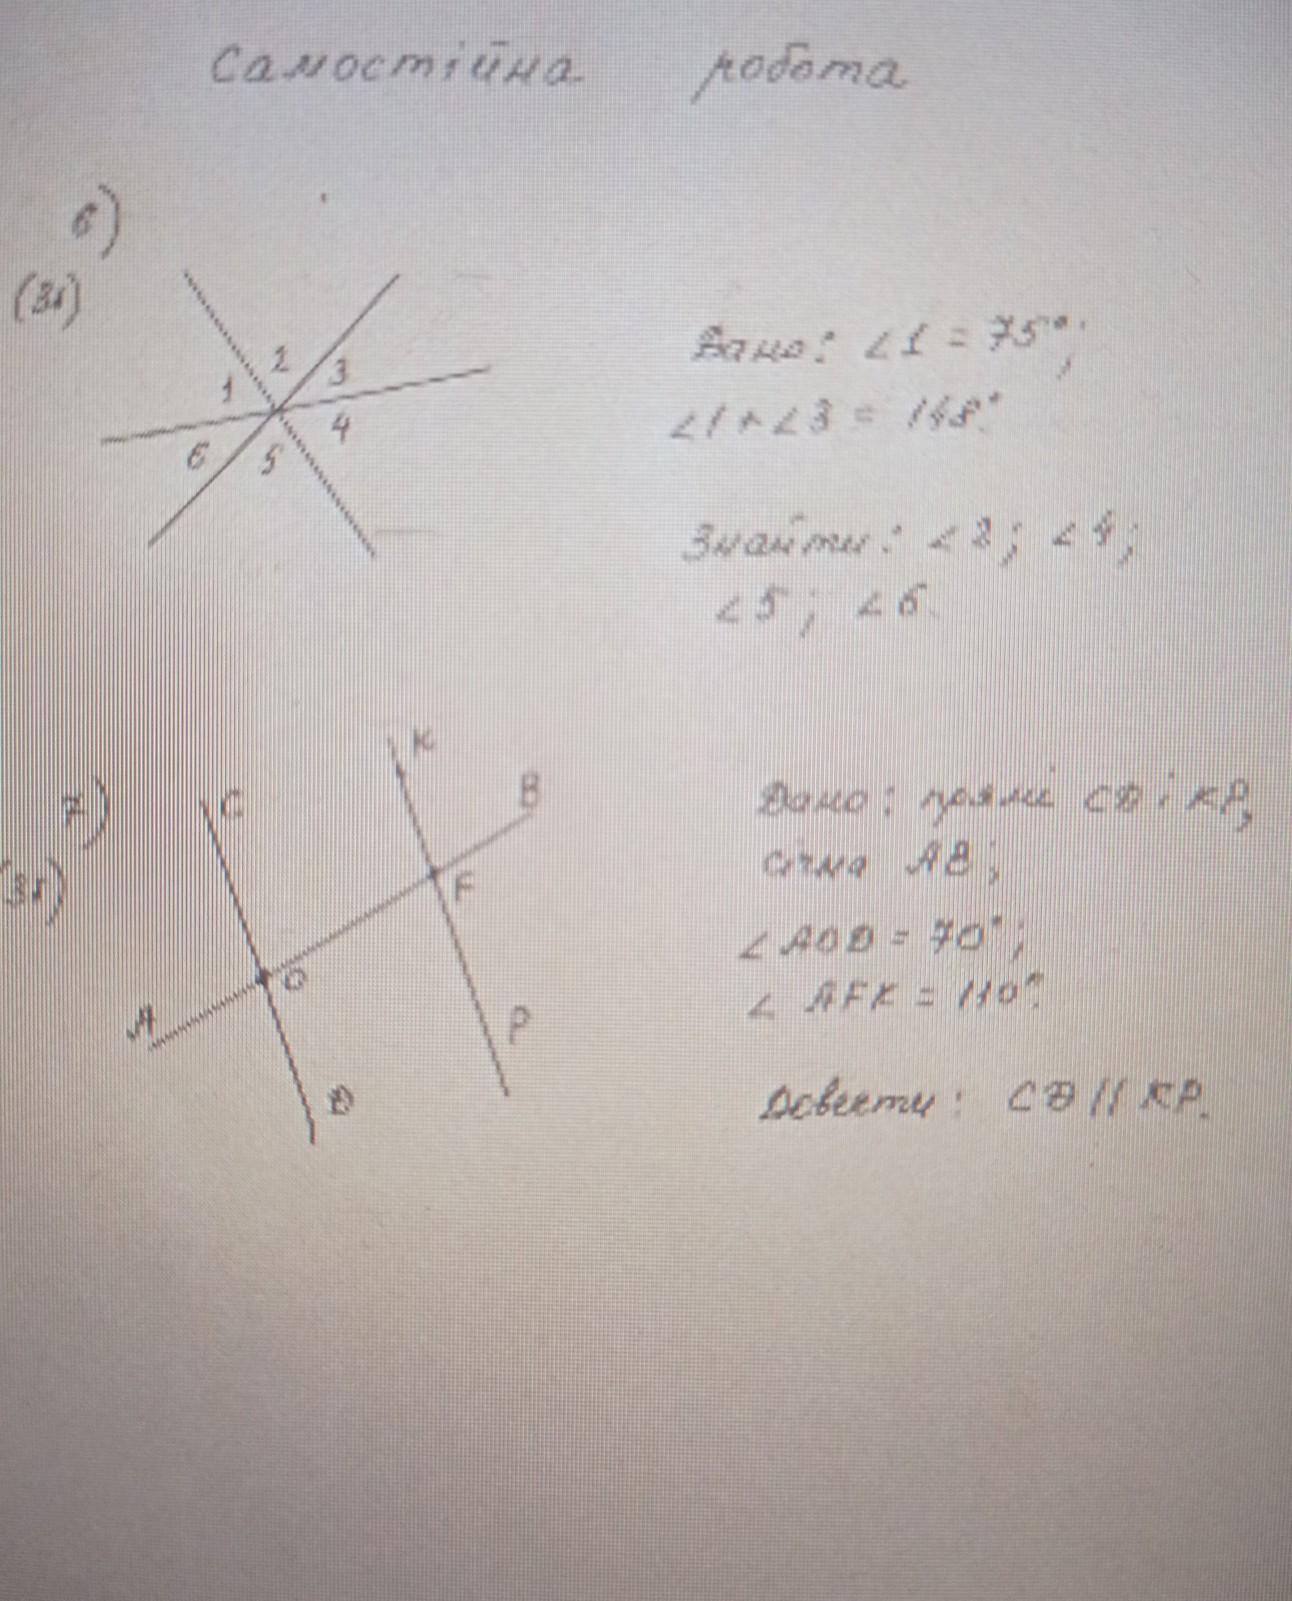 Самостійна робота
6)
(3б)
1 2 3
4
6 5
Дано: ∠1 = 75°;
∠1+∠3 = 148°.
Знайти: ∠2; ∠4;
∠5; ∠6.
7)
(3б)
K
C B
F
O
A
P
D
Дано: прямі CD і KP,
січна AB;
∠AOD = 70°;
∠AFK = 110°.
Довести: CD || KP.